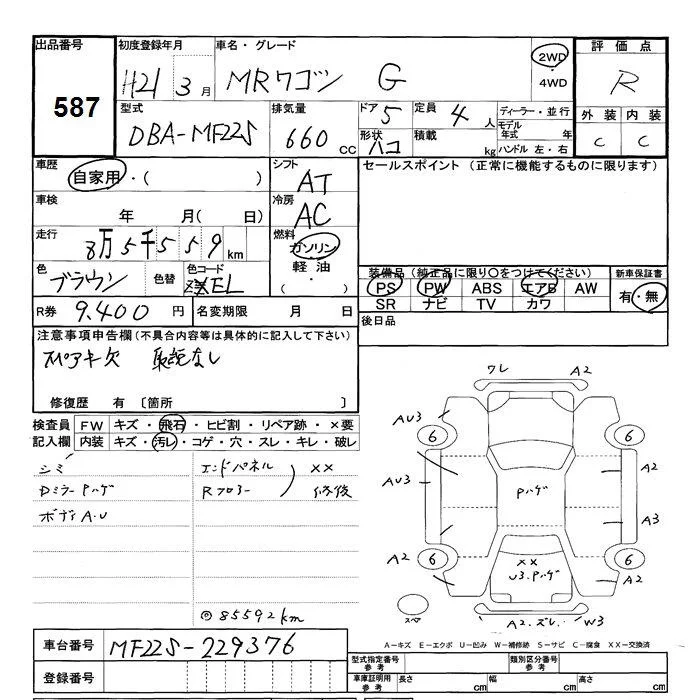 出品番号 初度登録年月 車名・グレード 評価点
587 H21 3月 MRワゴン G 2WD・4WD R
型式 排気量 ドア 5 定員 4人 ディーラー・並行 外装 内装
DBA-MF22S 660cc 形状 ハコ 積載 kg モデル年式 年 ハンドル 左・右 C C
車歴 自家用・( ) シフト AT セールスポイント (正常に機能するものに限ります)
車検 年 月( 日) 冷房 AC
走行 8万5千559km 燃料 ガソリン・軽油・( )
色 ブラウン 色替 色コード ZEL 装備品 (純正品に限り○をつけてください) 新車保証書
PS PW ABS エアB AW 有・無
R券 9.400円 名変期限 月 日 SR ナビ TV カワ
後日品
注意事項申告欄(不具合内容等は具体的に記入して下さい)
スペアキ欠 取説なし
修復歴 有 〔箇所 〕
検査員 FW キズ・飛石・ヒビ割・リペア跡・×要
記入欄 内装 キズ・汚レ・コゲ・穴・スレ・キレ・破レ
シミ エンドパネル ××
Dミラー Pハゲ Rフロアー 修後
ボディA.U
◎85592km
ワレ A2
AU3 6 6
AU3 Pハゲ A2
A3
A2 6 ×× U3.Pハゲ 6 A2
スペア A2.ズレ. W3
A−キズ E−エクボ U−凹み W−補修跡 S−サビ C−腐食 XX−交換済
車台番号 MF22S-229376
登録番号
型式指定番号 参考 類別区分番号 参考
車庫証明用 参考 長さ cm 幅 cm 高さ cm